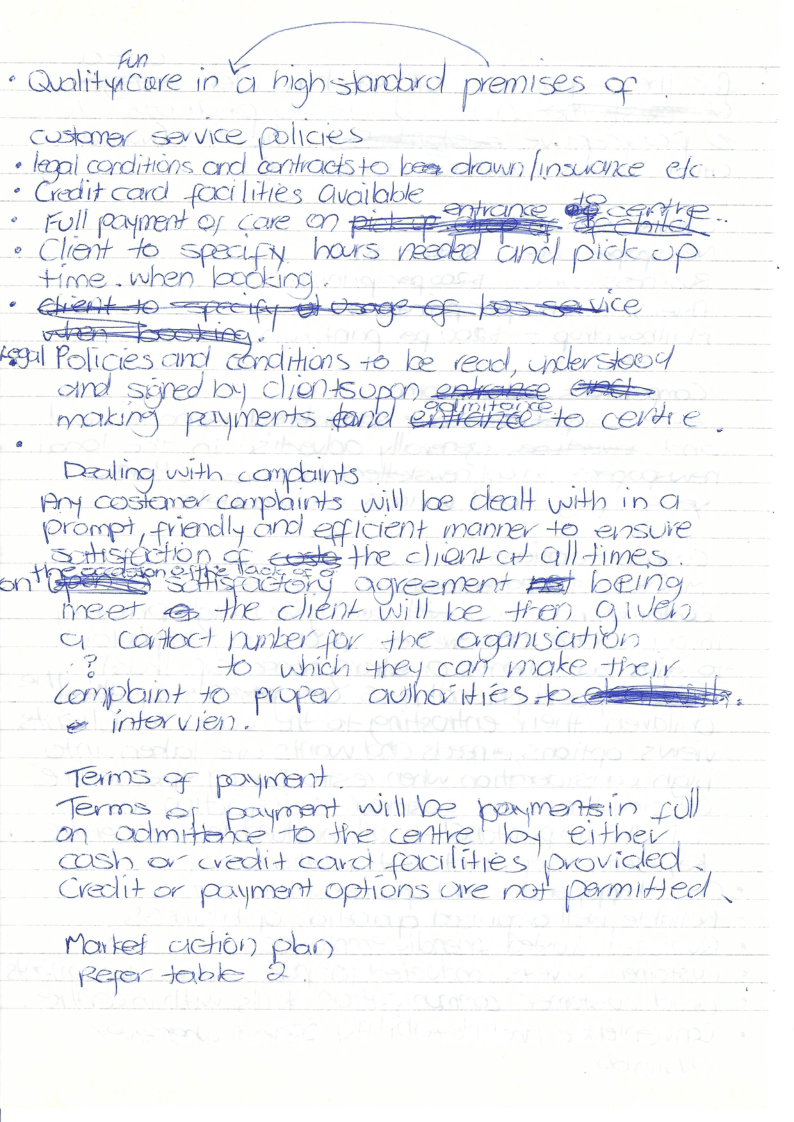 Fun
• Quality, Care in a high standard premises of
customer service policies
• legal conditions and contracts to be drawn/insurance etc
• Credit card facilities available
• Full payment of care on pick up entrance to centre..
of child
• Client to specify hours needed and pick up
time. when booking.
• Client to specify of usage of bus service
when booking.
Legal Policies and conditions to be read, understood
and signed by clients upon entrance and
admitance
making payments and entrance to centre.
•
Dealing with complaints.
Any costomer complaints will be dealt with in a
prompt, friendly and efficient manner to ensure
satisfaction of the client at all times.
the occasion of the lack of a
on satisfactory agreement not being
meet the client will be then given
a contact number for the organisation
? to which they can make their
complaint to proper authorities. to
intervien.
Terms of payment.
Terms of payment will be payments in full
on admittance to the centre by either
cash or credit card facilities provided.
Credit or payment options are not permitted.
Market action plan
Refer table 2.